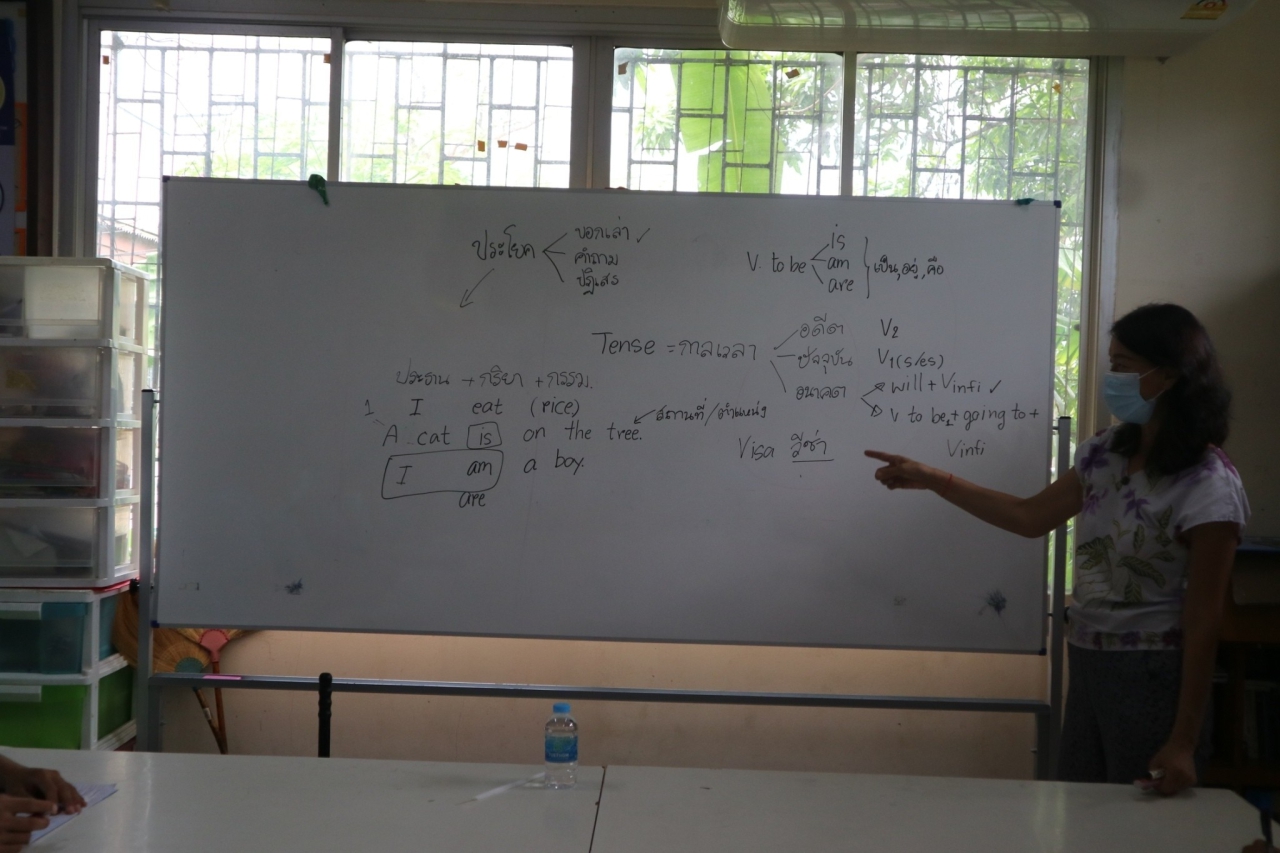 ประโยค
บอกเล่า ✓
คำถาม
ปฏิเสธ
V. to be
is
am
are
เป็น, อยู่, คือ
Tense = กาลเวลา
อดีต V2
ปัจจุบัน V1(s/es)
อนาคต
will + Vinfi ✓
V to be + going to +
Vinfi
ประธาน + กริยา + กรรม.
1 I eat (rice)
A cat is on the tree.
สถานที่/ตำแหน่ง
I am a boy.
are
Visa วีซ่า